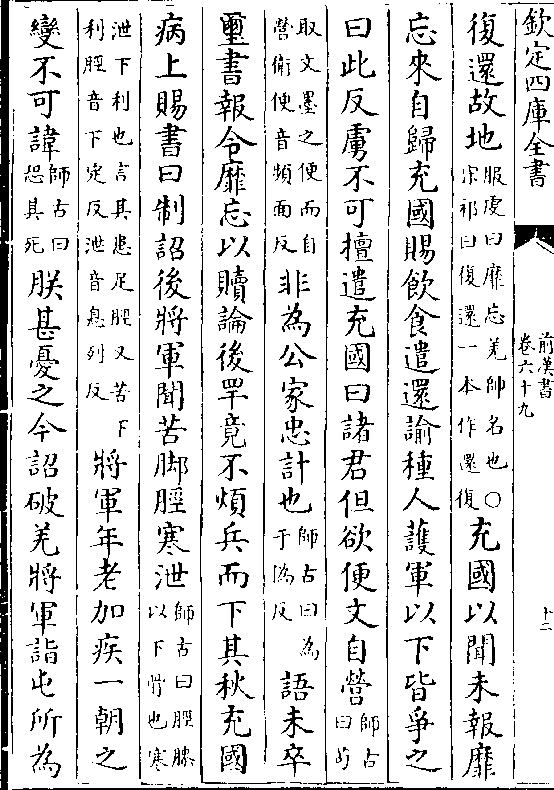 欽定四庫全書
前漢書
卷六十九
十二
復還故地服虔曰靡忘羌帥名也○
宋祁曰復還一本作還復充國以聞未報靡
忘來自歸充國賜飲食遣還諭種人護軍以下皆爭之
曰此反虜不可擅遣充國曰諸君但欲便文自營師古
曰苟
取文墨之便而自
營衛便音頻面反非為公家忠計也師古曰為
于偽反語未卒
璽書報令靡忘以贖論後罕竟不煩兵而下其秋充國
病上賜書曰制詔後將軍聞苦脚脛寒泄師古曰脛膝
以下骨也寒
泄下利也言其患足脛又苦下
利脛音下定反泄音息列反將軍年老加疾一朝之
變不可諱師古曰
恐其死朕甚憂之今詔破羌將軍詣屯所為